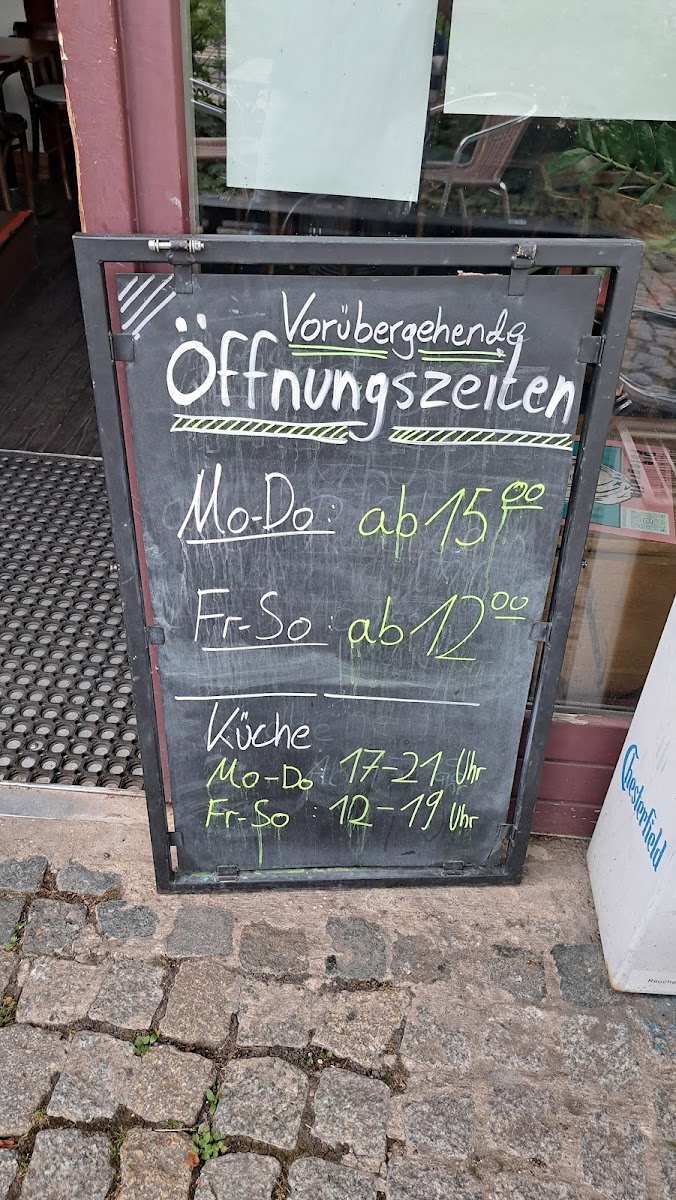 Vorübergehende
Öffnungszeiten
Mo-Do: ab 15⁰⁰
Fr-So: ab 12⁰⁰
Küche
Mo-Do: 17-21 Uhr
Fr-So: 12-19 Uhr
Chesterfield